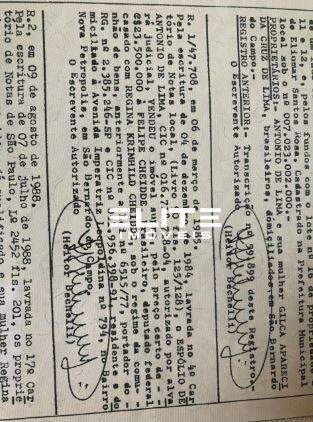 11 e 12, e, pelos fundos com o lote nº 16 de propriedade
de Elcemann Santa Rosa. Cadastrado na Prefeitura Municipal
local sob o nº 007.023.002.000.-
PROPRIETÁRIOS:- ANTONIO DE LIMA e sua mulher GILCA APARECI
DA CRUZ DE LIMA, brasileiros, domiciliados em São Bernardo
do Campo.
REGISTRO ANTERIOR:- Transcrição nº 99.099 deste Registro.-
O Escrevente Autorizado
(Heitor Bechelli)
R.1/47.708, em 06 de março de 1985.
Pela escritura de 04 de dezembro de 1984, lavrada no 4º Car
tório de Notas local, (Livro fls. 125/128), o ESPÓLIO DE
ANTONIO DE LIMA, CIC nº 016.7 8-01, autorizado por alva
rá judicial, VENDEU o imóvel supra, pelo preço certo de - -
Cr$23.500.000, a FELIPE CHEIDDE, brasileiro, deputado federal
casado com REGINA KRIMHILD CHEIDDE, sob o regime da comu-
nhão de bens, anteriormente a Lei nº 6515/77, portador do -
RG. nº 2.385.246-SP e CIC nº 398. , residente e do
miciliado a Avenida Imperatriz Leopoldina nº 794, no Bairro
Nova Petrópolis, em São Bernardo do Campo.
O Escrevente Autorizado
(Heitor Bechelli)
R.2, em 09 de agosto de 1988.
Pela escritura de 07 de julho de 1988, lavrada no 17º Car
tório de Notas de São Paulo, Lº 2452 fls. 201, os proprie
e sua mulher Regina